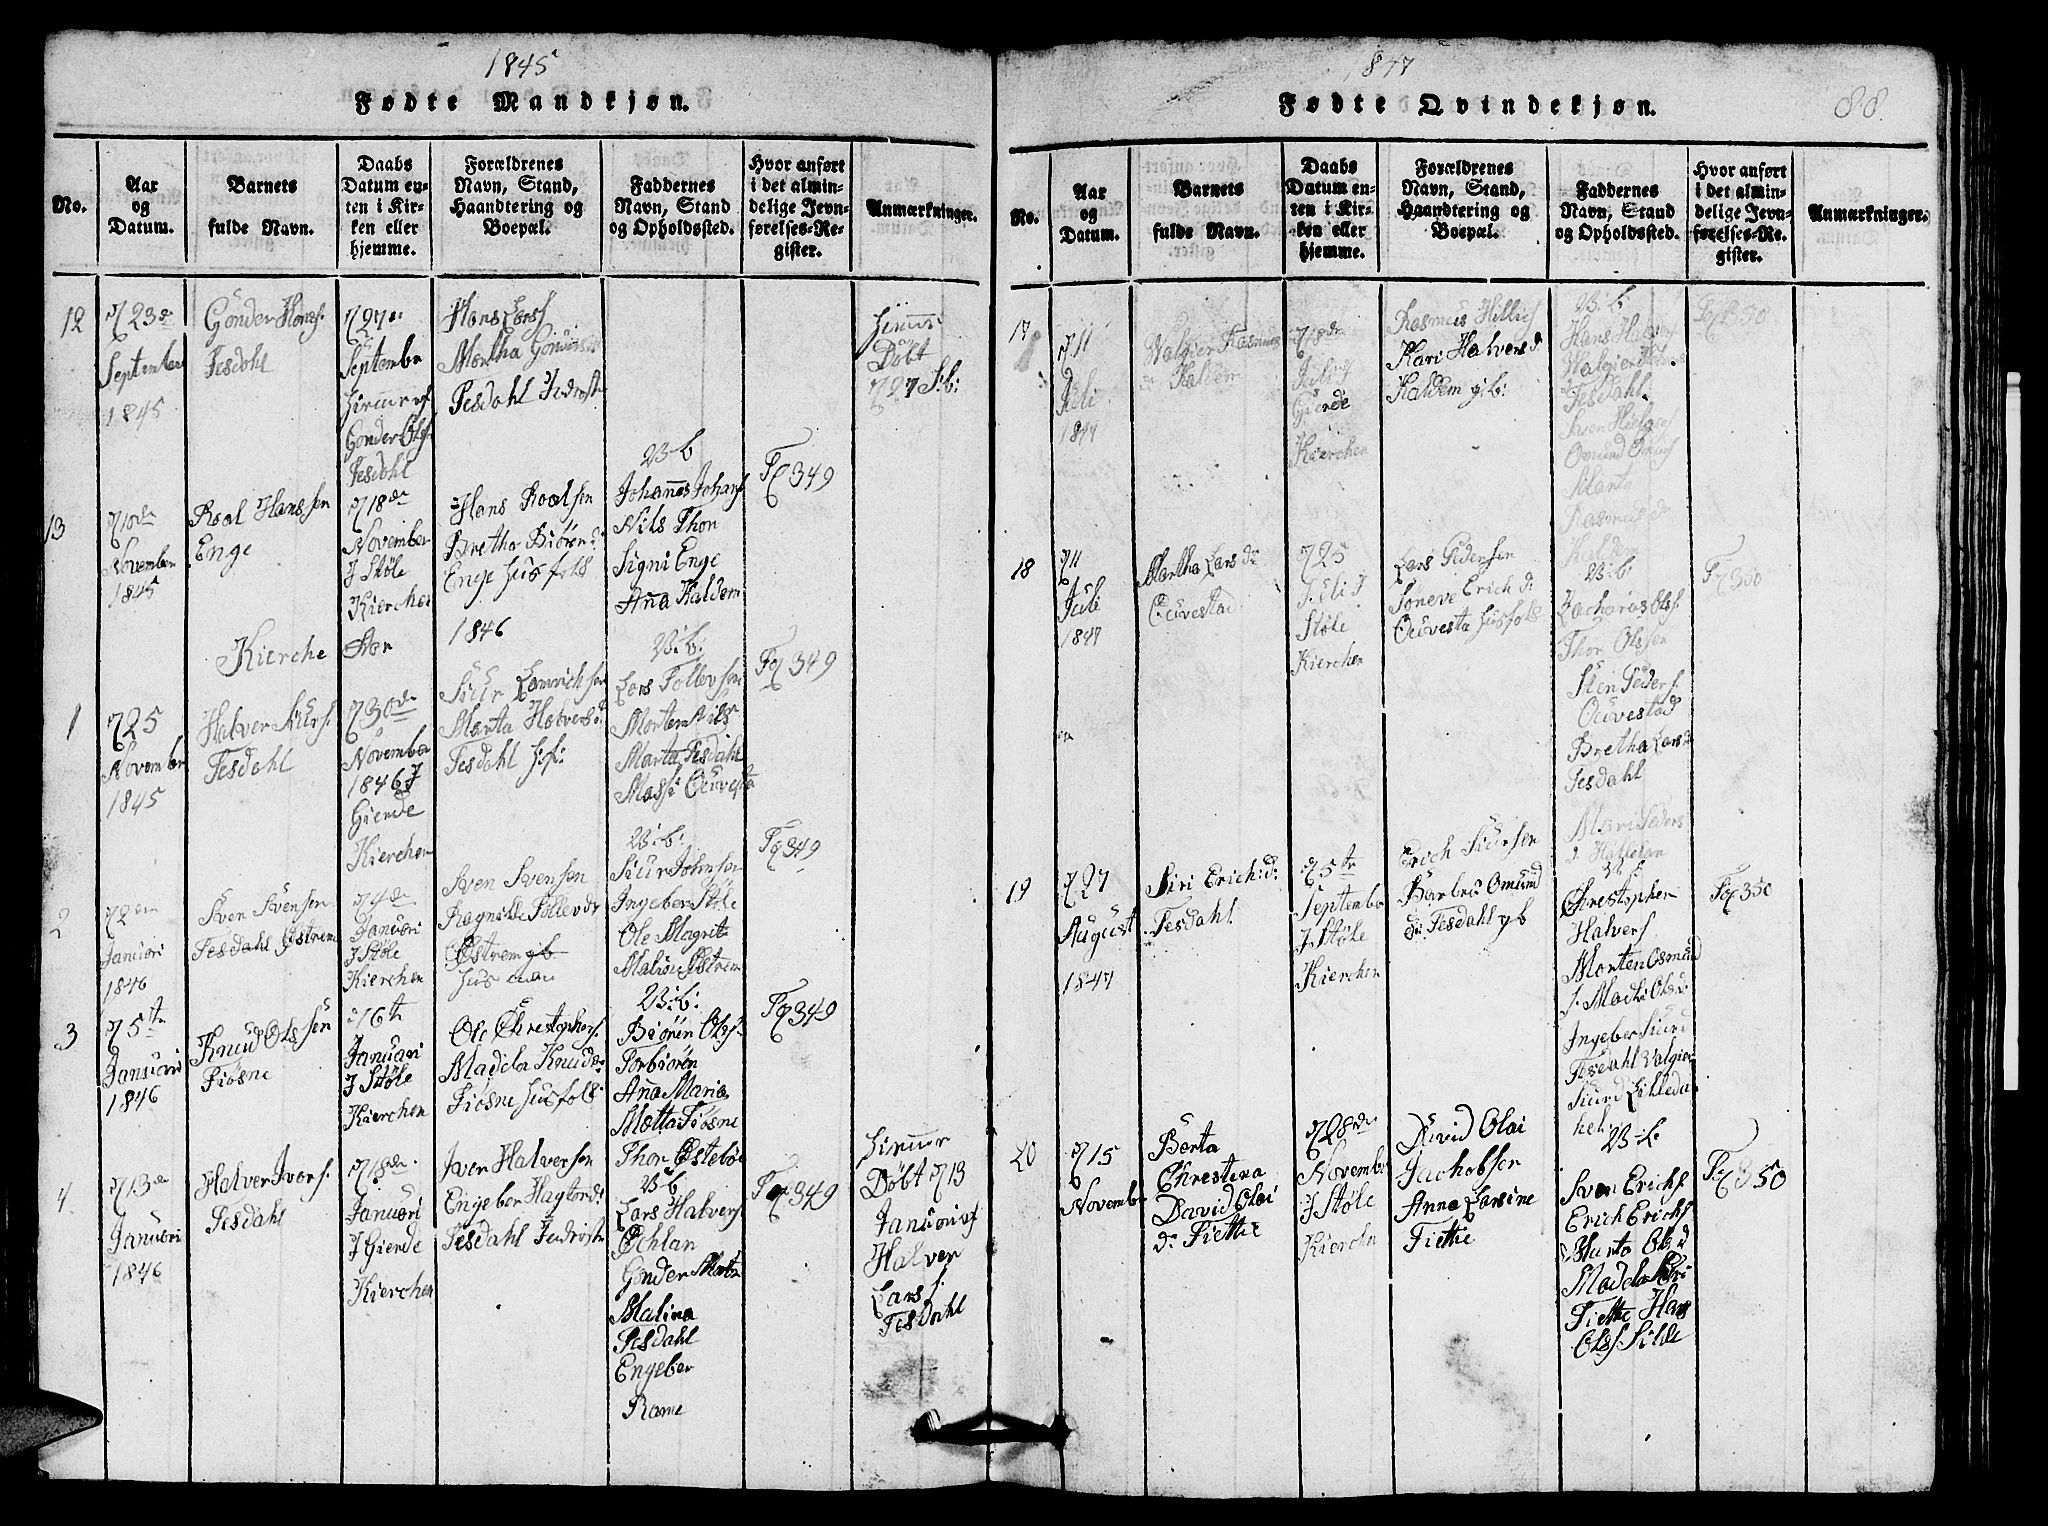 1845
Fødte Mandkjøn.
No.
Aar
og
Datum.
Barnets
fulde Navn.
Daabs
Datum en-
ten i Kir-
ken eller
hjemme.
Forældrenes
Navn, Stand,
Haandtering og
Boepæl.
Faddernes
Navn, Stand
og Opholdssted.
Hvor anført
i det almin-
delige Jevn-
førelses-Re-
gister.
Anmærkninger.
12
23de
September
1845
Gonder Hans.
Tesdahl
27de
Septembr
Gonder Ols.
Tesdahl
Hans Larss
Martha
Tesdahl
Döbt
13
10de
November
1845
Roal Hanssen
Enge
18de
November
J Støle
Kierchen
Hans Roalsen
Bretha Biören d:
Enge Husfolk
V-b
Johannes Johans
Nils Thor
Signi Enge
Ana Kaldem
349
Kierche Aar 1846
1
25
November
1845
Halver Siurs.
Tesdahl
30de
November
1846 J
Gierde
Kierchen
Siur
Marta Halvers d
Tesdahl
V:b:
Lars Tollevsen
Morten Nils
Marta Tesdahl
Massi Ouvesta
349
2
2den
Januari
1846
Sven Svensen
Tesdahl Østrem
4de
Januari
J Støle
Kierchen
Sven Svensen
Ragnilde Tollevdr
Østrem gb
Husman
V:b:
Siur Johnsen
Ingeber Støle
Ole Magrit
Malene Østrem
349
3
5te
Januari
1846
Knud Olssen
Fiøsne
16te
Januari
J Støle
Kierchen
Ole Chrestophers.
Madela Knuds:
Fiøsne Husfolk
V:b:
Biören Ols.
Torbiören
Ana Maria
Mætta Fiøsne
Thor Østebøe
349
4
13de
Januari
1846
Halver Ivers.
Tesdahl
18de
Januari
J Gierde
Kierchen
Iver Halversen
Engeber Hagtord:
Tesdahl
V:b
Lars Halvers
Øchlan
Gonder Mata
Malina
Tesdahl
Engeber
Rame
349
Döbt 13
Januari af
Halver
Lars s
Tesdahl
1847
Fødte Qvindekjøn.
88.
No.
Aar
og
Datum.
Barnets
fulde Navn.
Daabs
Datum en-
ten i Kir-
ken eller
hjemme.
Forældrenes
Navn, Stand,
Haandtering og
Boepæl.
Faddernes
Navn, Stand
og Opholdssted.
Hvor anført
i det almin-
delige Jevn-
førelses-Re-
gister.
Anmærkninger.
17
11
Juli
1847
Valgier Rasmus
d: Kaldem
18de
Juli J
Gierde
Kierchen
Rasmus
Kari Halvers d
Kaldem gb:
V:b:
Tesdahl
Rasmus d
350
18
11
Juli
1847
Martha Lars d:
Ouvestad
25
Juli J
Støle
Kierchen
Lars Pedersen
Soneve Erich d:
Ouvesta Husfolk
V:b:
Zacharias Ols.
Thor Olssen
Sten Peders.
Ouvestad
Bretha Lars d
Tesdahl
350
19
27
August
1847
Siri Erich:d:
Tesdahl
5te
Septembr
J Støle
Kierchen
Erich Siursen
Barbru Omund
d: Tesdahl gb
V:b:
Chrestopher
Halvers
Morten Osmund
s. Madli Ols d:
Ingeber Siur d
Tesdahl Valgier
350
20
15
November
Berta
Chrestena
David Olai
d: Fiettie
28de
Novembe
J Støle
Kierchn
David Olai
Jachobsen
Anne Larsine
Fiettie
V:b:
Sven Erichs
Erich Erichs
Marta Ols d
Madela Siri
Fiette Hans
Olss Silde
350